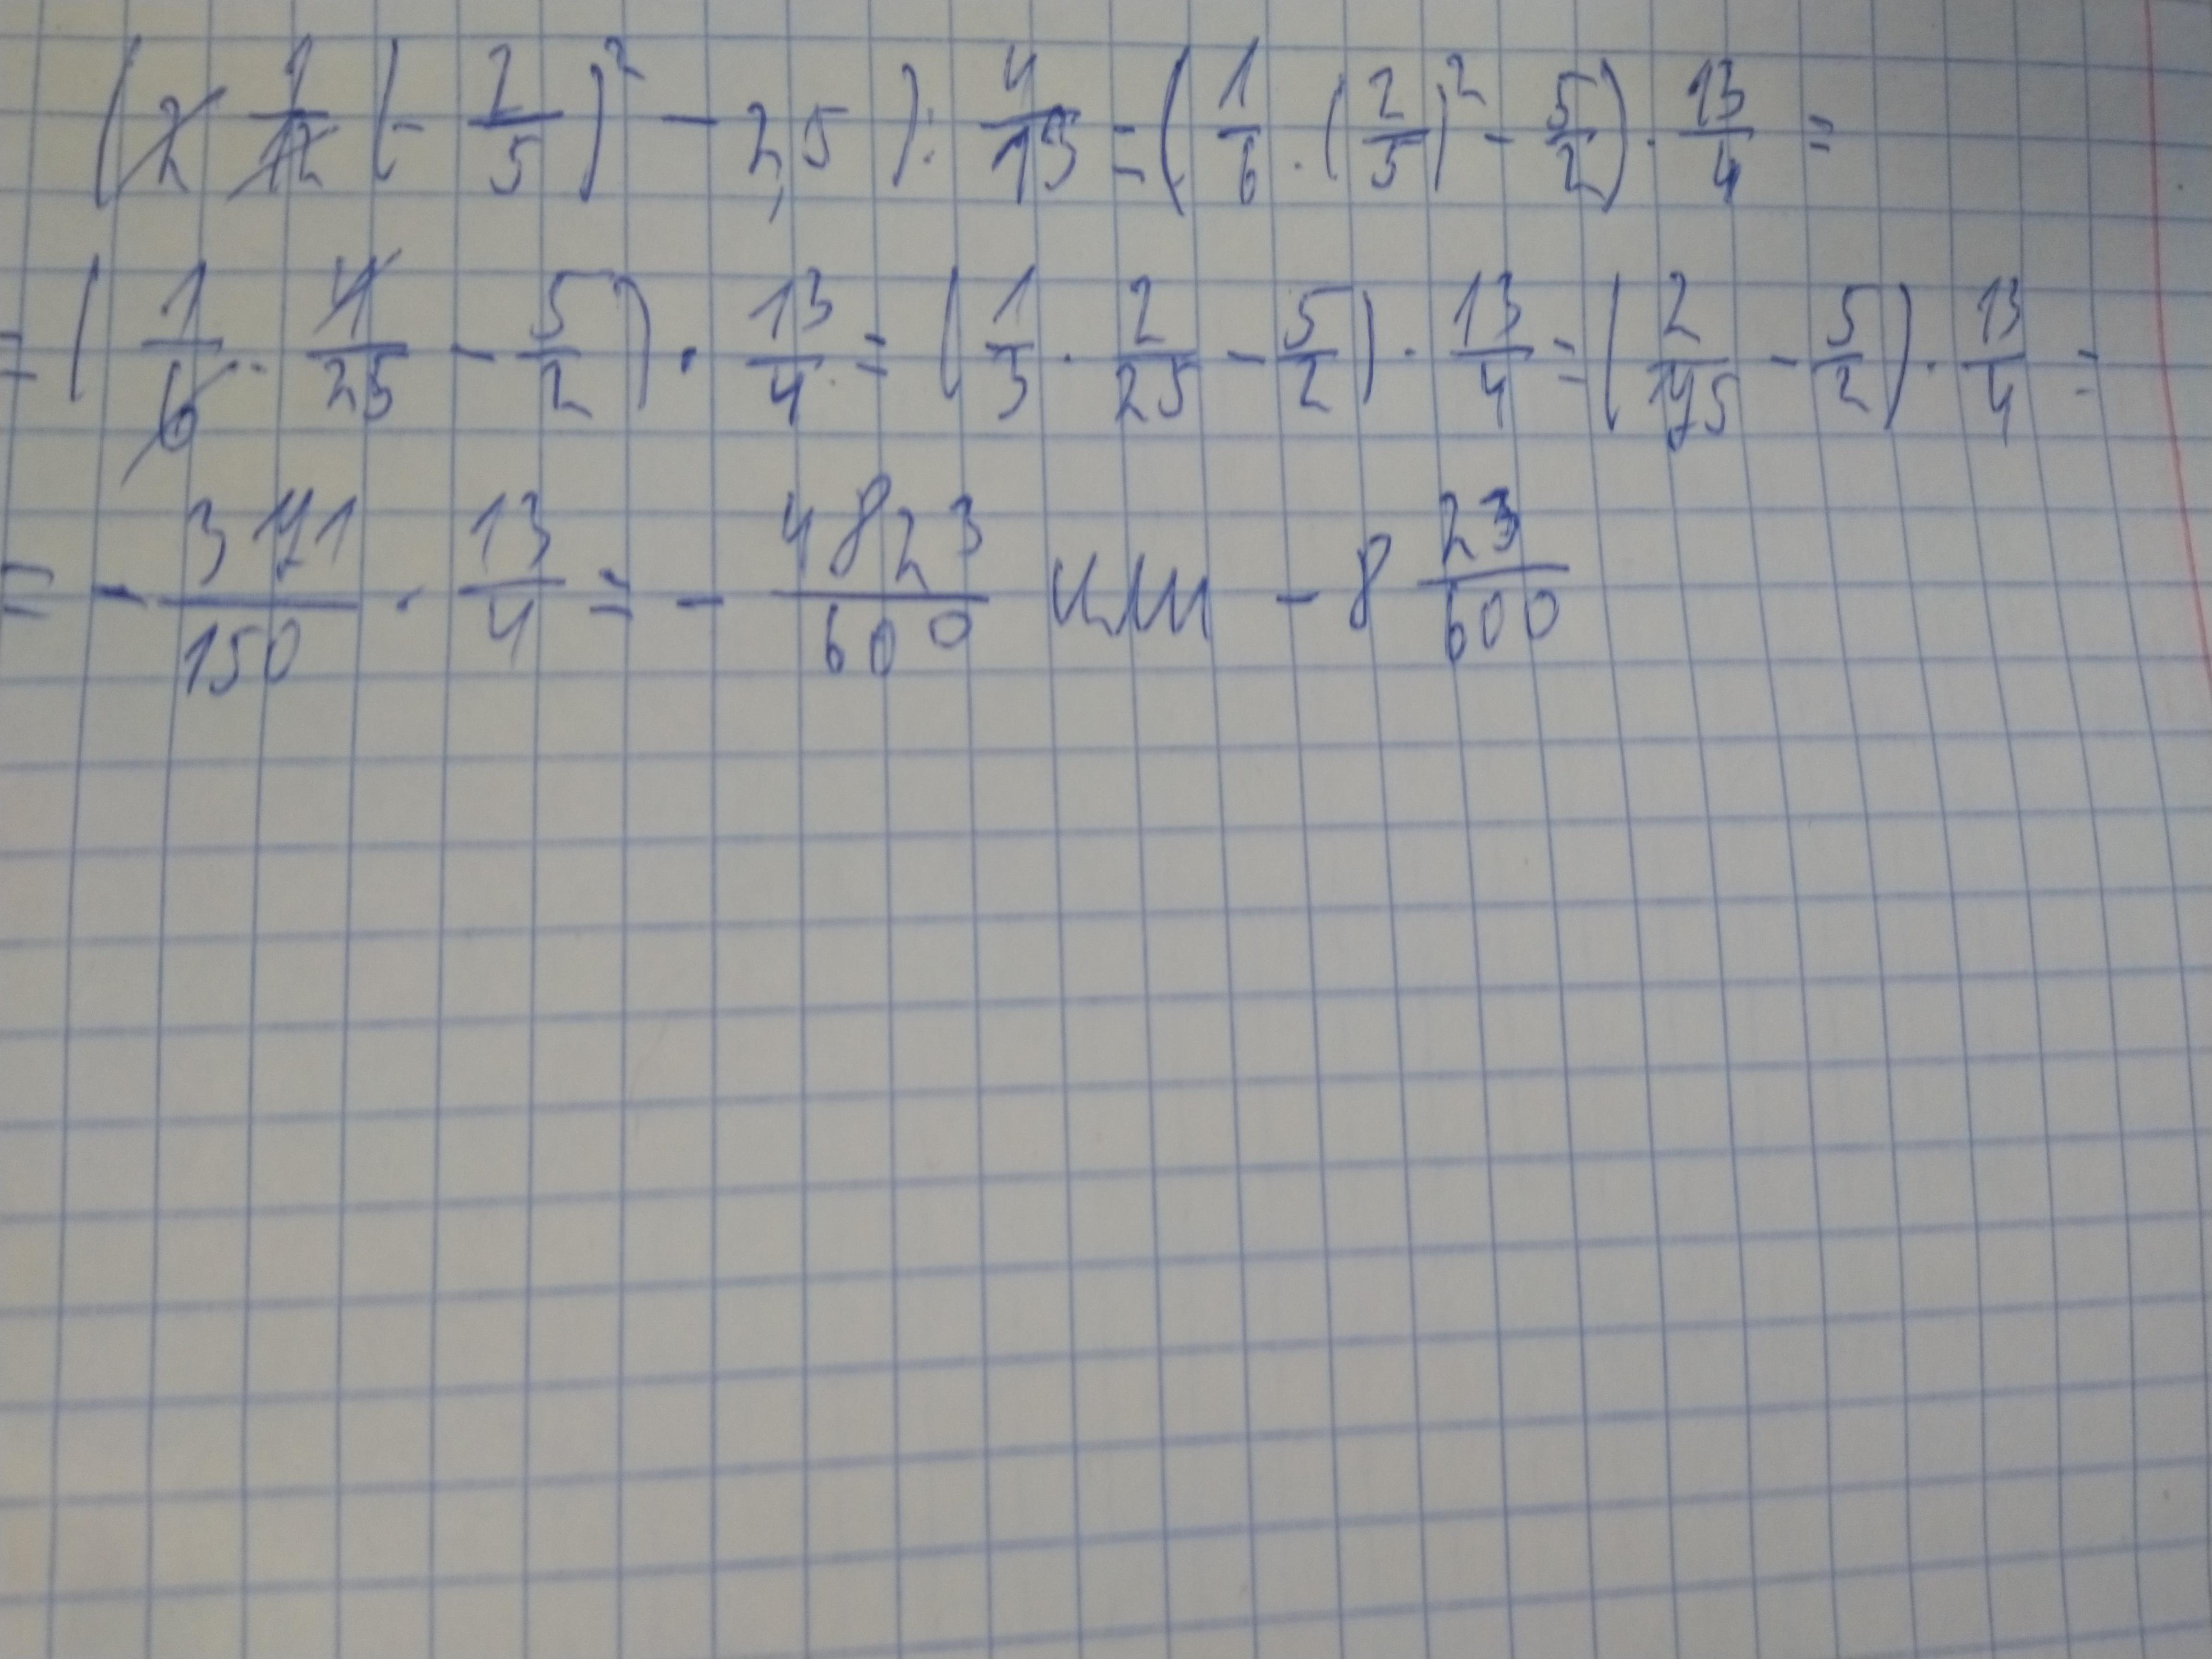 (2 1/12 (-2/5)² - 2,5) : 4/13 = (1/6 · (2/5)² - 5/2) · 13/4 =
= (1/6 · 4/25 - 5/2) · 13/4 = (1/3 · 2/25 - 5/2) · 13/4 = (2/75 - 5/2) · 13/4 =
= - 371/150 · 13/4 = - 4823/600 или - 8 23/600